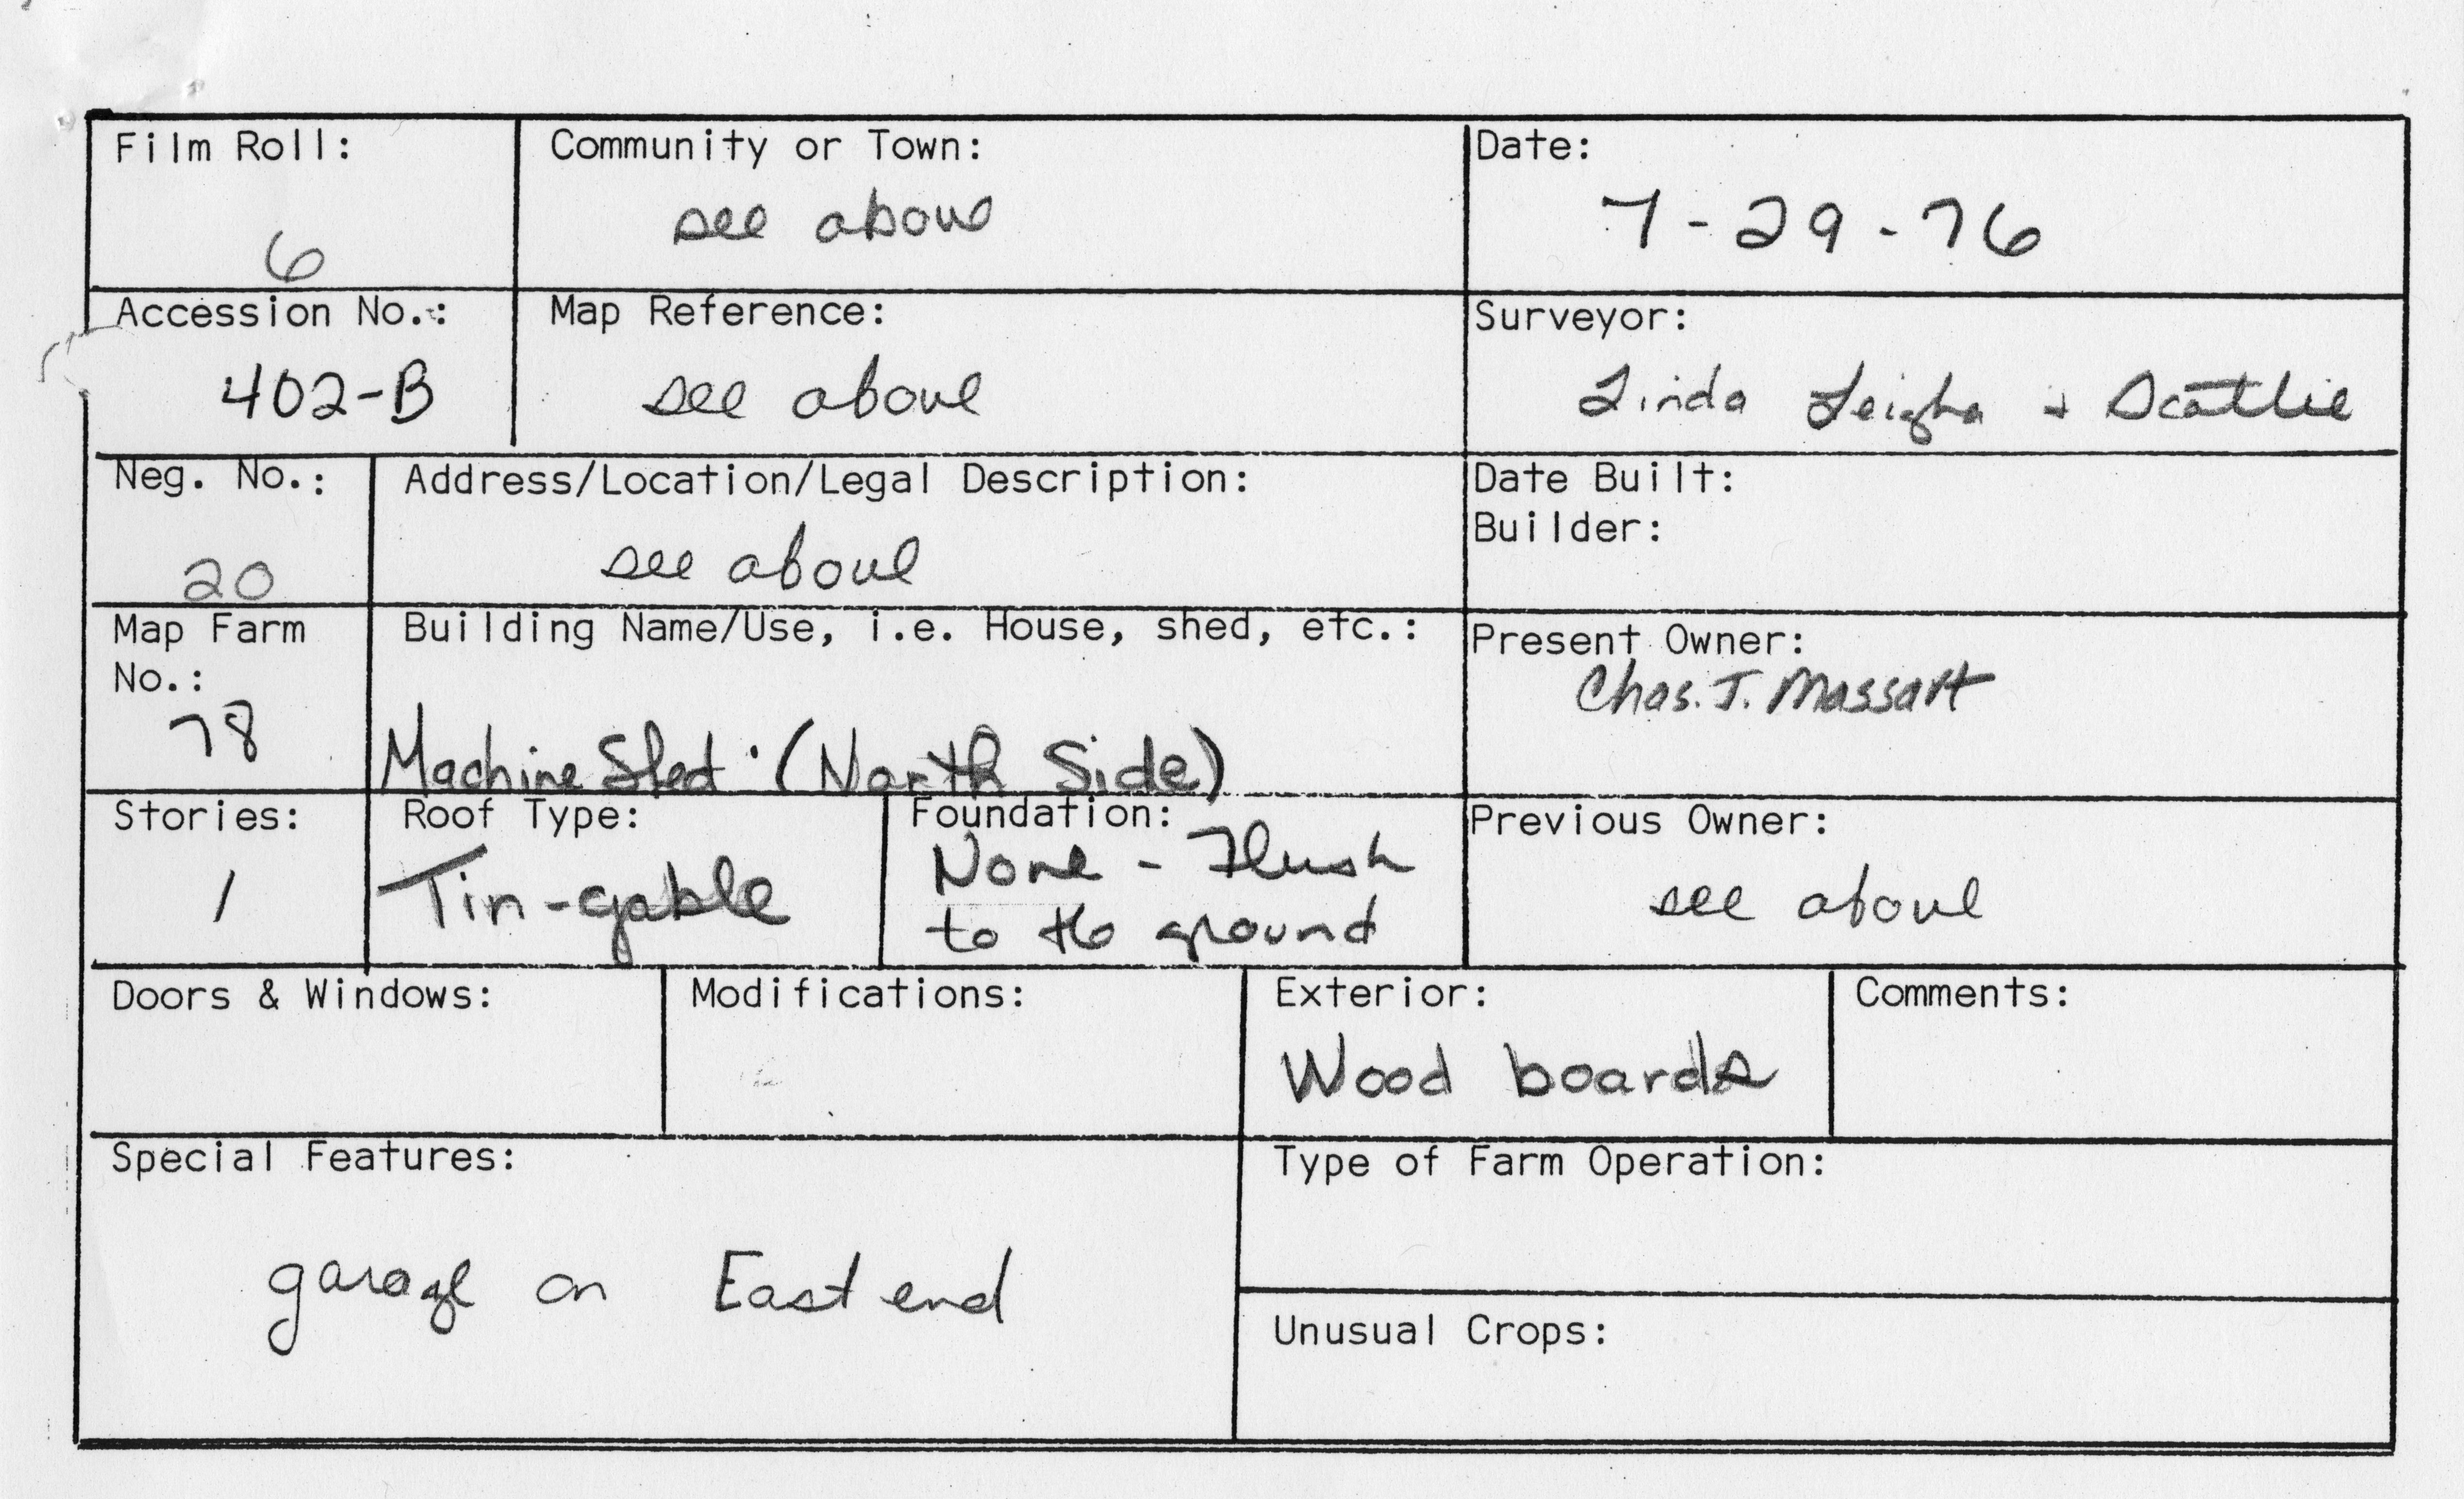 Film Roll:
6
Community or Town:
see above
Date:
7-29-76
Accession No.:
402-B
Map Reference:
see above
Surveyor:
Linda Leigha +
Neg. No.:
20
Address/Location/Legal Description:
see above
Date Built:
Builder:
Map Farm
No.:
78
Building Name/Use, i.e. House, shed, etc.:
Machine Shed (North Side)
Present Owner:
Chas. J. Massart
Stories:
1
Roof Type:
Tin-gable
Foundation:
None - Flush
to the ground
Previous Owner:
see above
Doors & Windows:
Modifications:
Exterior:
Wood boards
Comments:
Special Features:
garage on East end
Type of Farm Operation:
Unusual Crops: